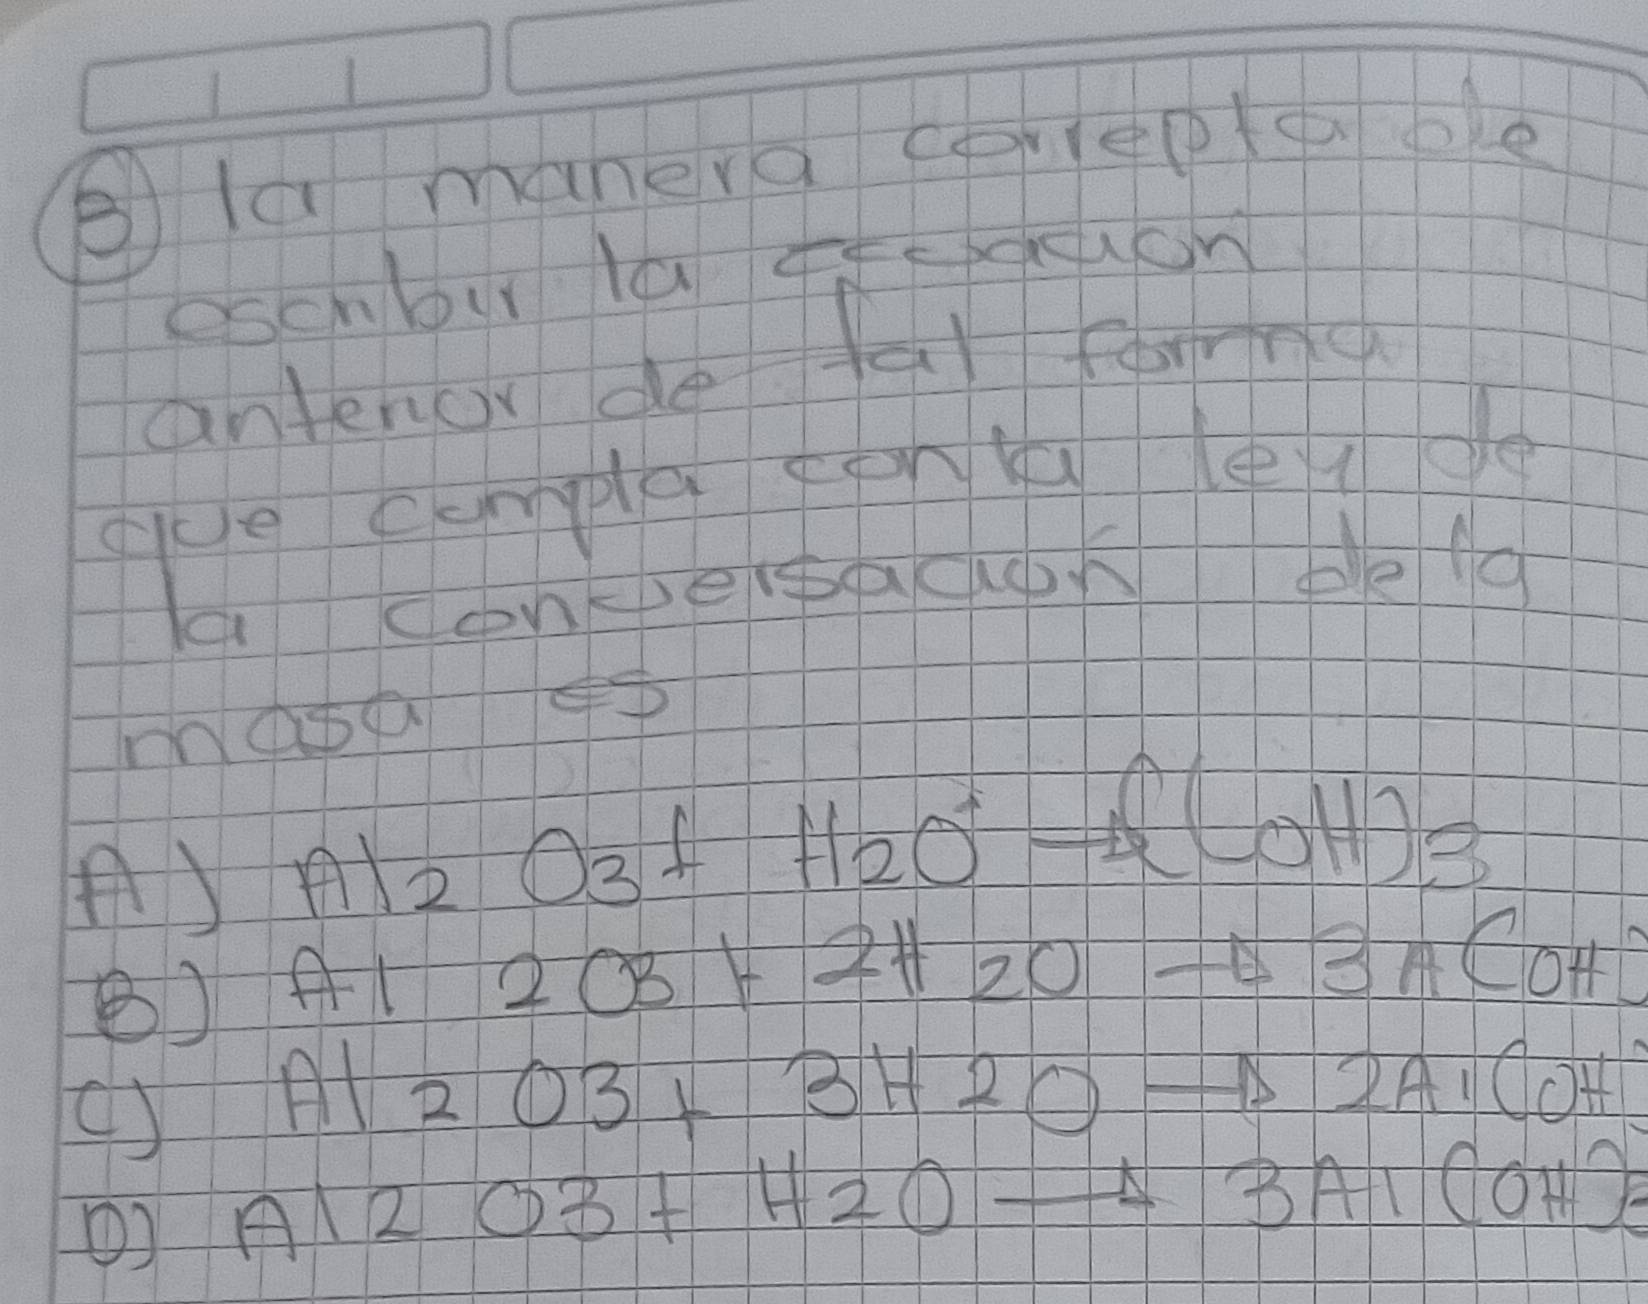 3) la manera correpta de
escribir la ecuación
anterior de tal forma
que cumpla con la ley de
la conversación de la
masa es
A) Al2 O3 + H2O → (OH)3
B) Al 2O3 + 2H 2O → 3A(OH)
C) Al2 O3 + 3H2O → 2Al(OH)
D) Al2 O3 + H2O → 3Al(OH)3